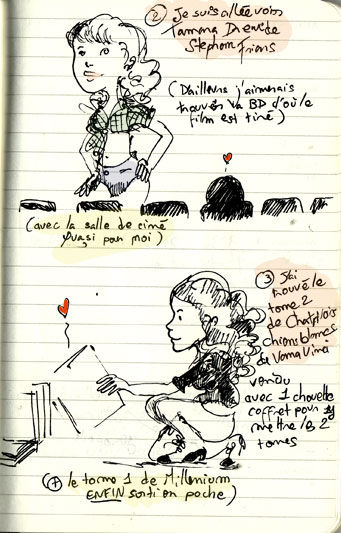 ② Je suis allée voir
Tamara Drewe de
Stephen Frears
(D'ailleurs j'aimerais
trouver la BD d'où le
film est tiré)
(avec la salle de ciné
quasi pour moi)
③ J'ai
trouvé le
tome 2
de
chiens blancs
de
vendu
avec 1 chouette
coffret pour y
mettre les 2
tomes
(+ le tome 1 de Millenium
ENFIN sorti en poche)